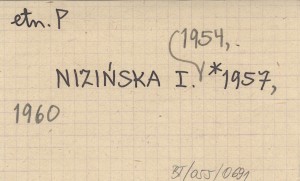 etn. P
1954,
NIZIŃSKA I. *1957,
1960
BI/055/0691